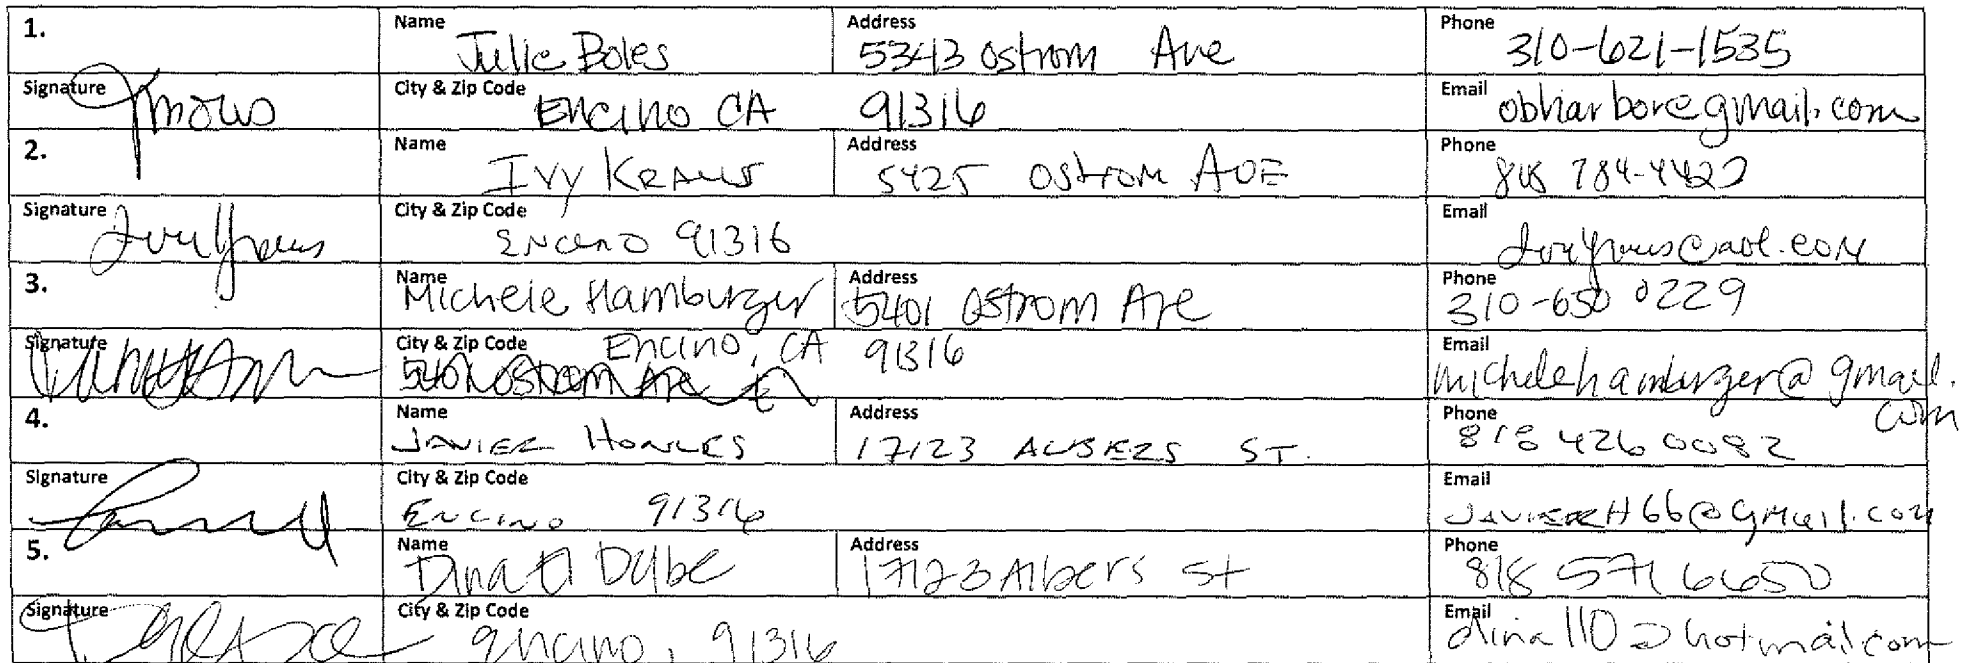 1. Name Julie Boles Address 5343 Ostrom Ave Phone 310-621-1535
Signature City & Zip Code Encino CA 91316 Email obharbor@gmail.com
2. Name Ivy Kraus Address 5425 Ostrom AVE Phone 818 784-4422
Signature City & Zip Code Encino 91316 Email
3. Name Michele Hamburger Address 5401 Ostrom Ave Phone 310-650 0229
Signature City & Zip Code Encino, CA 91316 Email michelehamburger@gmail.
com
4. Name JAVIER Address 17123 ALBERS ST. Phone 818 426 0082
Signature City & Zip Code ENCINO 91316 Email JAVIERH66@gmail.com
5. Name Dina Address 17123 Albers St Phone 818 571 6650
Signature City & Zip Code encino, 91316 Email dina110@hotmail.com